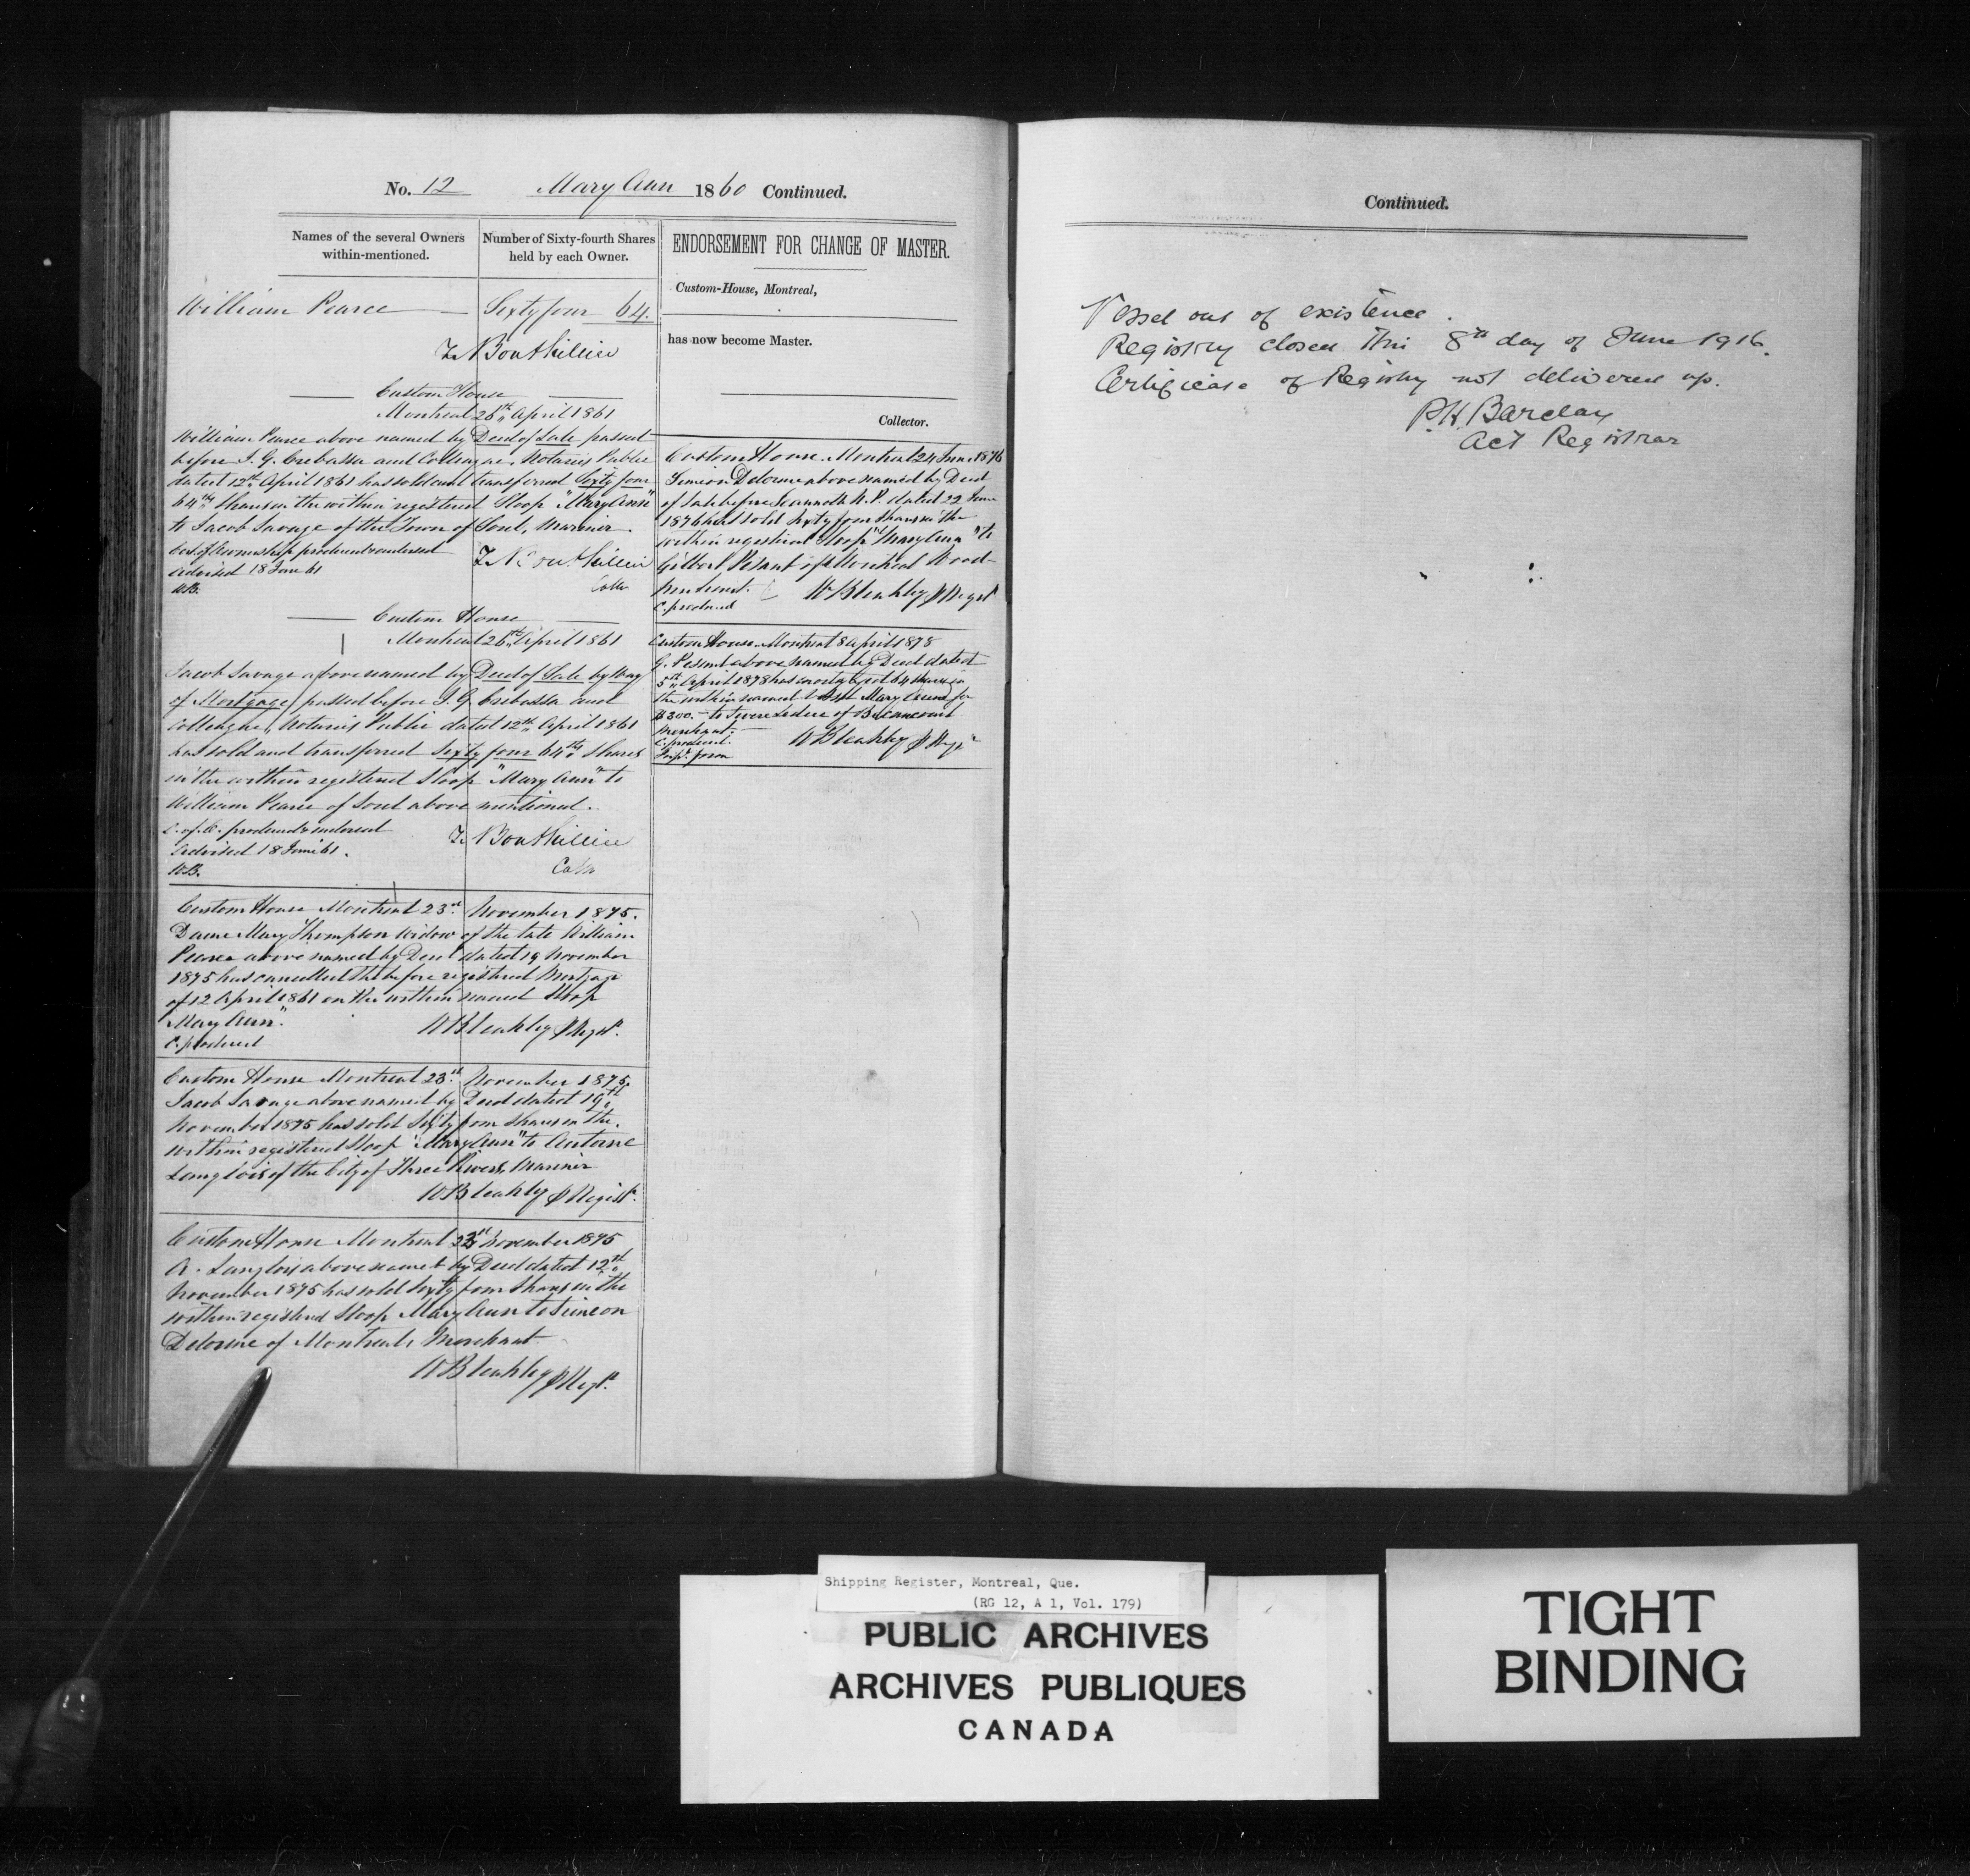 No. 12 Mary Ann 1860 Continued.
Names of the several Owners
within-mentioned.
Number of Sixty-fourth Shares
held by each Owner.
William Pearce
Sixty four 64.
T. Bouthillier
Custom House
Montreal 26th April 1861
William Pearce above named by Deed of Sale passed
before I. G. Crebassa and Colleague, Notaries Public
dated 12th April 1861 has sold and transferred Sixty four
64ths Shares in the within registered Sloop "Mary Ann"
to Jacob Savage of the Town of Sorel, Mariner.
Cert. of Ownership produced & endorsed
Advised 18 June 61
WB.
T. Bouthillier
Collr
Custom House
Montreal 26th April 1861
Jacob Savage above named by Deed of Sale by Way
of Mortgage passed before I. G. Crebassa and
Colleague, Notaries Public dated 12th April 1861
has sold and transferred Sixty four 64ths Shares
in the within registered Sloop "Mary Ann" to
William Pearce of Sorel above mentioned.
C. of O. produced & endorsed
Advised 18 June 61.
WB.
T. Bouthillier
Collr
Custom House Montreal 23rd November 1875.
Dame Mary Thompson Widow of the late William
Pearce above named by Deed dated 19 November
1875 has cancelled the before registered Mortgage
of 12 April 1861 on the within named Sloop
"Mary Ann".
C. produced
W Bleakley Regist.
Custom House Montreal 23rd November 1875.
Jacob Savage above named by Deed dated 19th
November 1875 has sold Sixty four Shares in the
within registered Sloop "Mary Ann" to Antoine
Langlois of the City of Three Rivers, Mariner
W Bleakley Regist.
Custom House Montreal 23rd November 1875
A. Langlois above named by Deed dated 12th
November 1875 has sold Sixty four Shares in the
within registered Sloop Mary Ann to Simeon
Delorme of Montreal, Merchant
W Bleakley Regt.
ENDORSEMENT FOR CHANGE OF MASTER.
Custom-House, Montreal,
has now become Master.
Collector.
Custom House Montreal 24 June 1876
Simeon Delorme above named by Deed
of Sale before N.P. dated 22 June
1876 has sold Sixty four Shares in the
within registered Sloop "Mary Ann" to
Gilbert of Montreal Wood-
Merchant.
C. produced
W Bleakley Regst
Custom House Montreal 8 April 1878
G. above named by Deed dated
5th April 1878 has mortgaged 64 Shares in
the within named Mary Ann for
$300. - to of Becancour
Merchant.
C. produced.
W Bleakley Regr
Continued.
Vessel out of existence.
Registry closed this 8th day of June 1916.
Certificate of Registry not delivered up.
P.H. Barclay
Act Registrar
Shipping Register, Montreal, Que.
(RG 12, A 1, Vol. 179)
PUBLIC ARCHIVES
ARCHIVES PUBLIQUES
CANADA
TIGHT
BINDING